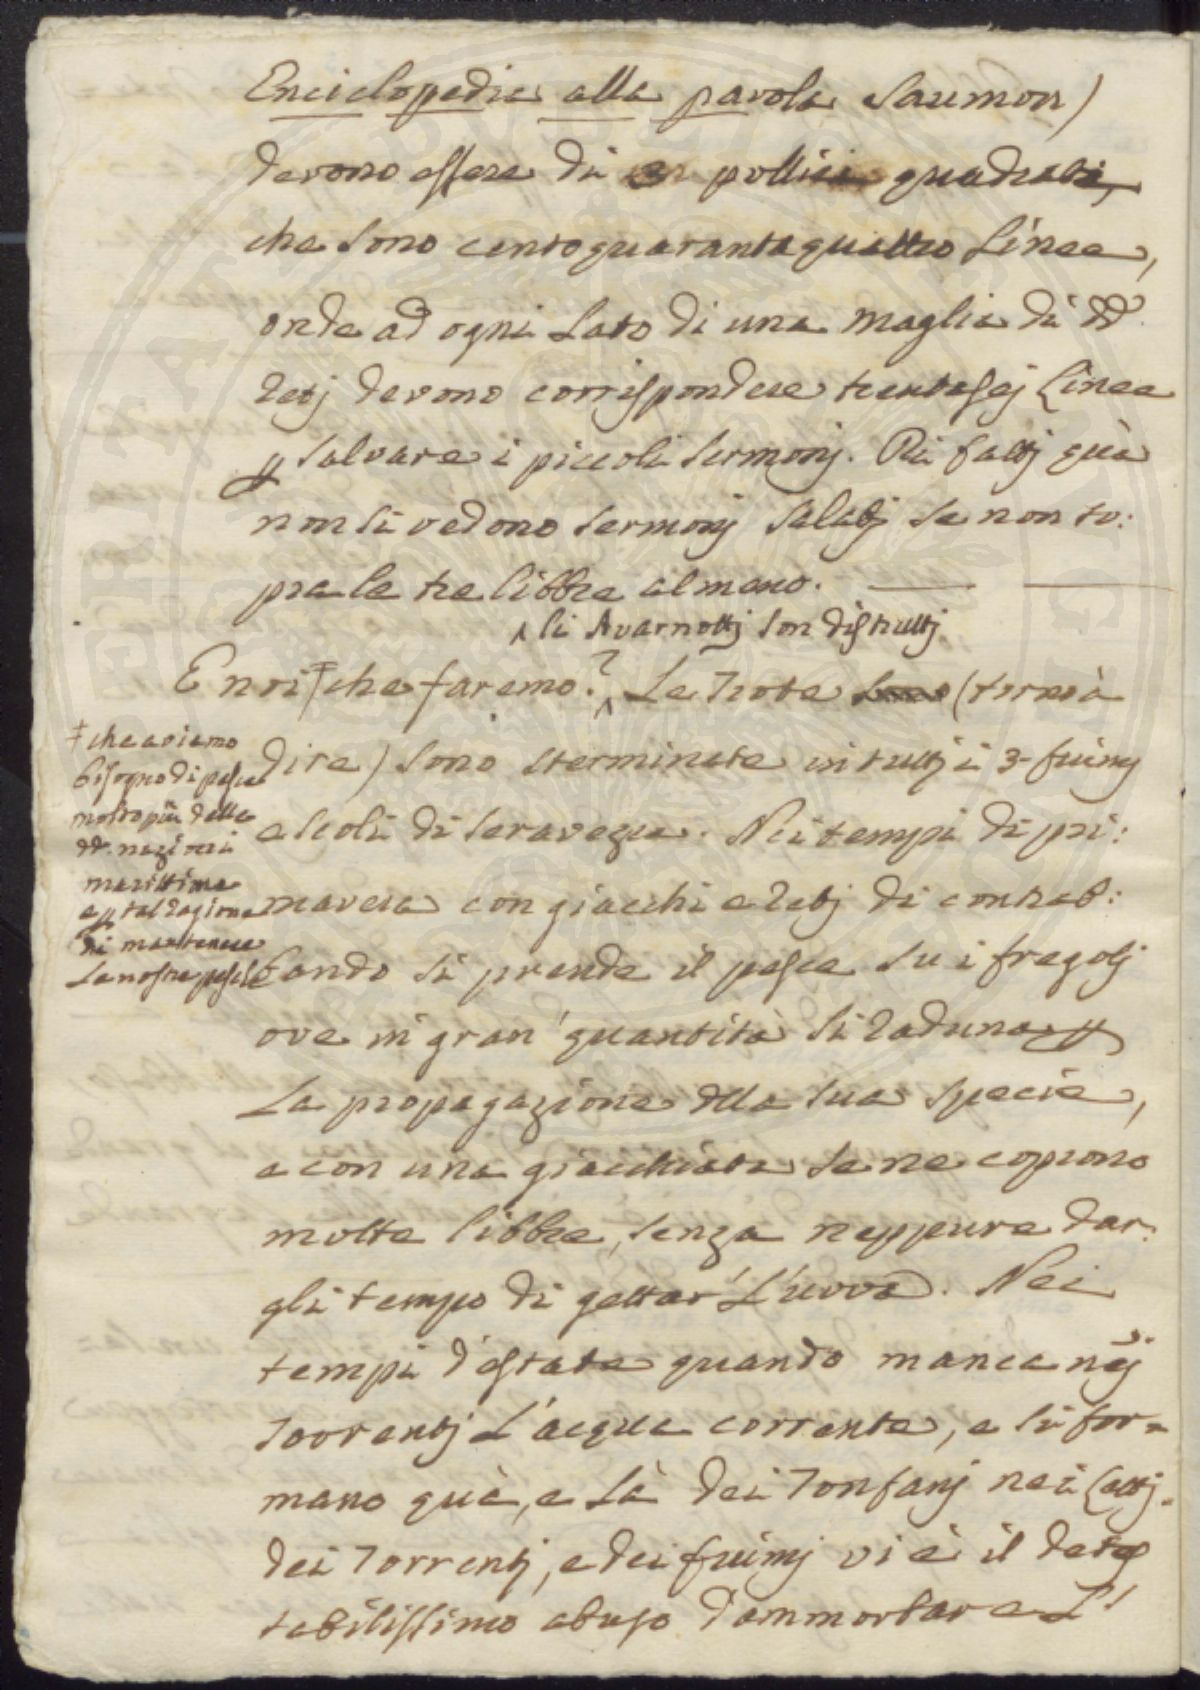 Enciclopedia alla parola Saumon)
devono essere di 3 pollici quadrati,
che sono centoquarantaquattro Linee,
onde ad ogni Lato di una maglia di dd.
Retj devono corrispondere trentasej Linee
p salvare i piccoli sermonj. Di fattj quà
non si vedono sermonj salatj se non so:
pra le tre libbre almeno.
li Avarnottj son distruttj
E noi ‡ che faremo? Le Trote sono (torno à
dire) sono sterminate in tuttj i 3 fiumj
e scoli di Seravezza. Nei tempi di pri:
mavera con giacchi e Retj di contrab:
bando si prende il pesce su i fregolj
ove in gran quantità si raduna p
La propagazione dlla sua specie,
e con una giacchiata se ne coprono
molte libbre, senza neppure dar:
gli tempo di gettar L'uova. Nei
tempi d'estate quando manca nej
Torrentj L'acqua corrente, e si for=
mano quà, e là dei Tonfanj nei Lettj
dei Torrentj, e dei fiumj vi è il detes
tabilissimo abuso d'ammorbare L'
‡ che aviamo
bisogno di pesce
molto più delle
dd. nazioni
marittime
e p tal ragione
di mantenere
Le nostre pesche